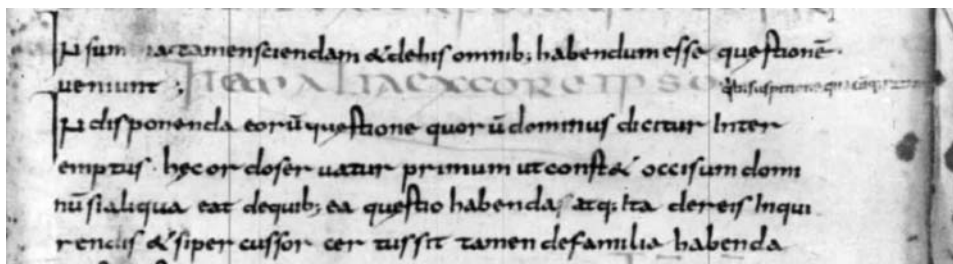 Ipsum tamen sciendam & de his omnib; habendum esse questionē.
ueniunt ; Item alia ex
In disponenda eorū questione quorū dominus dicitur Inter
emptus · hęc ordo seruatur primum ut const& occisum domi
nū si aliqua eat de quib; ea questio habenda; atq; Ita de reis Inqui
rendis & si percussor certus sit tamen de familia habenda